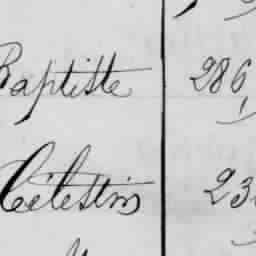 Baptiste 286
Célestin 23